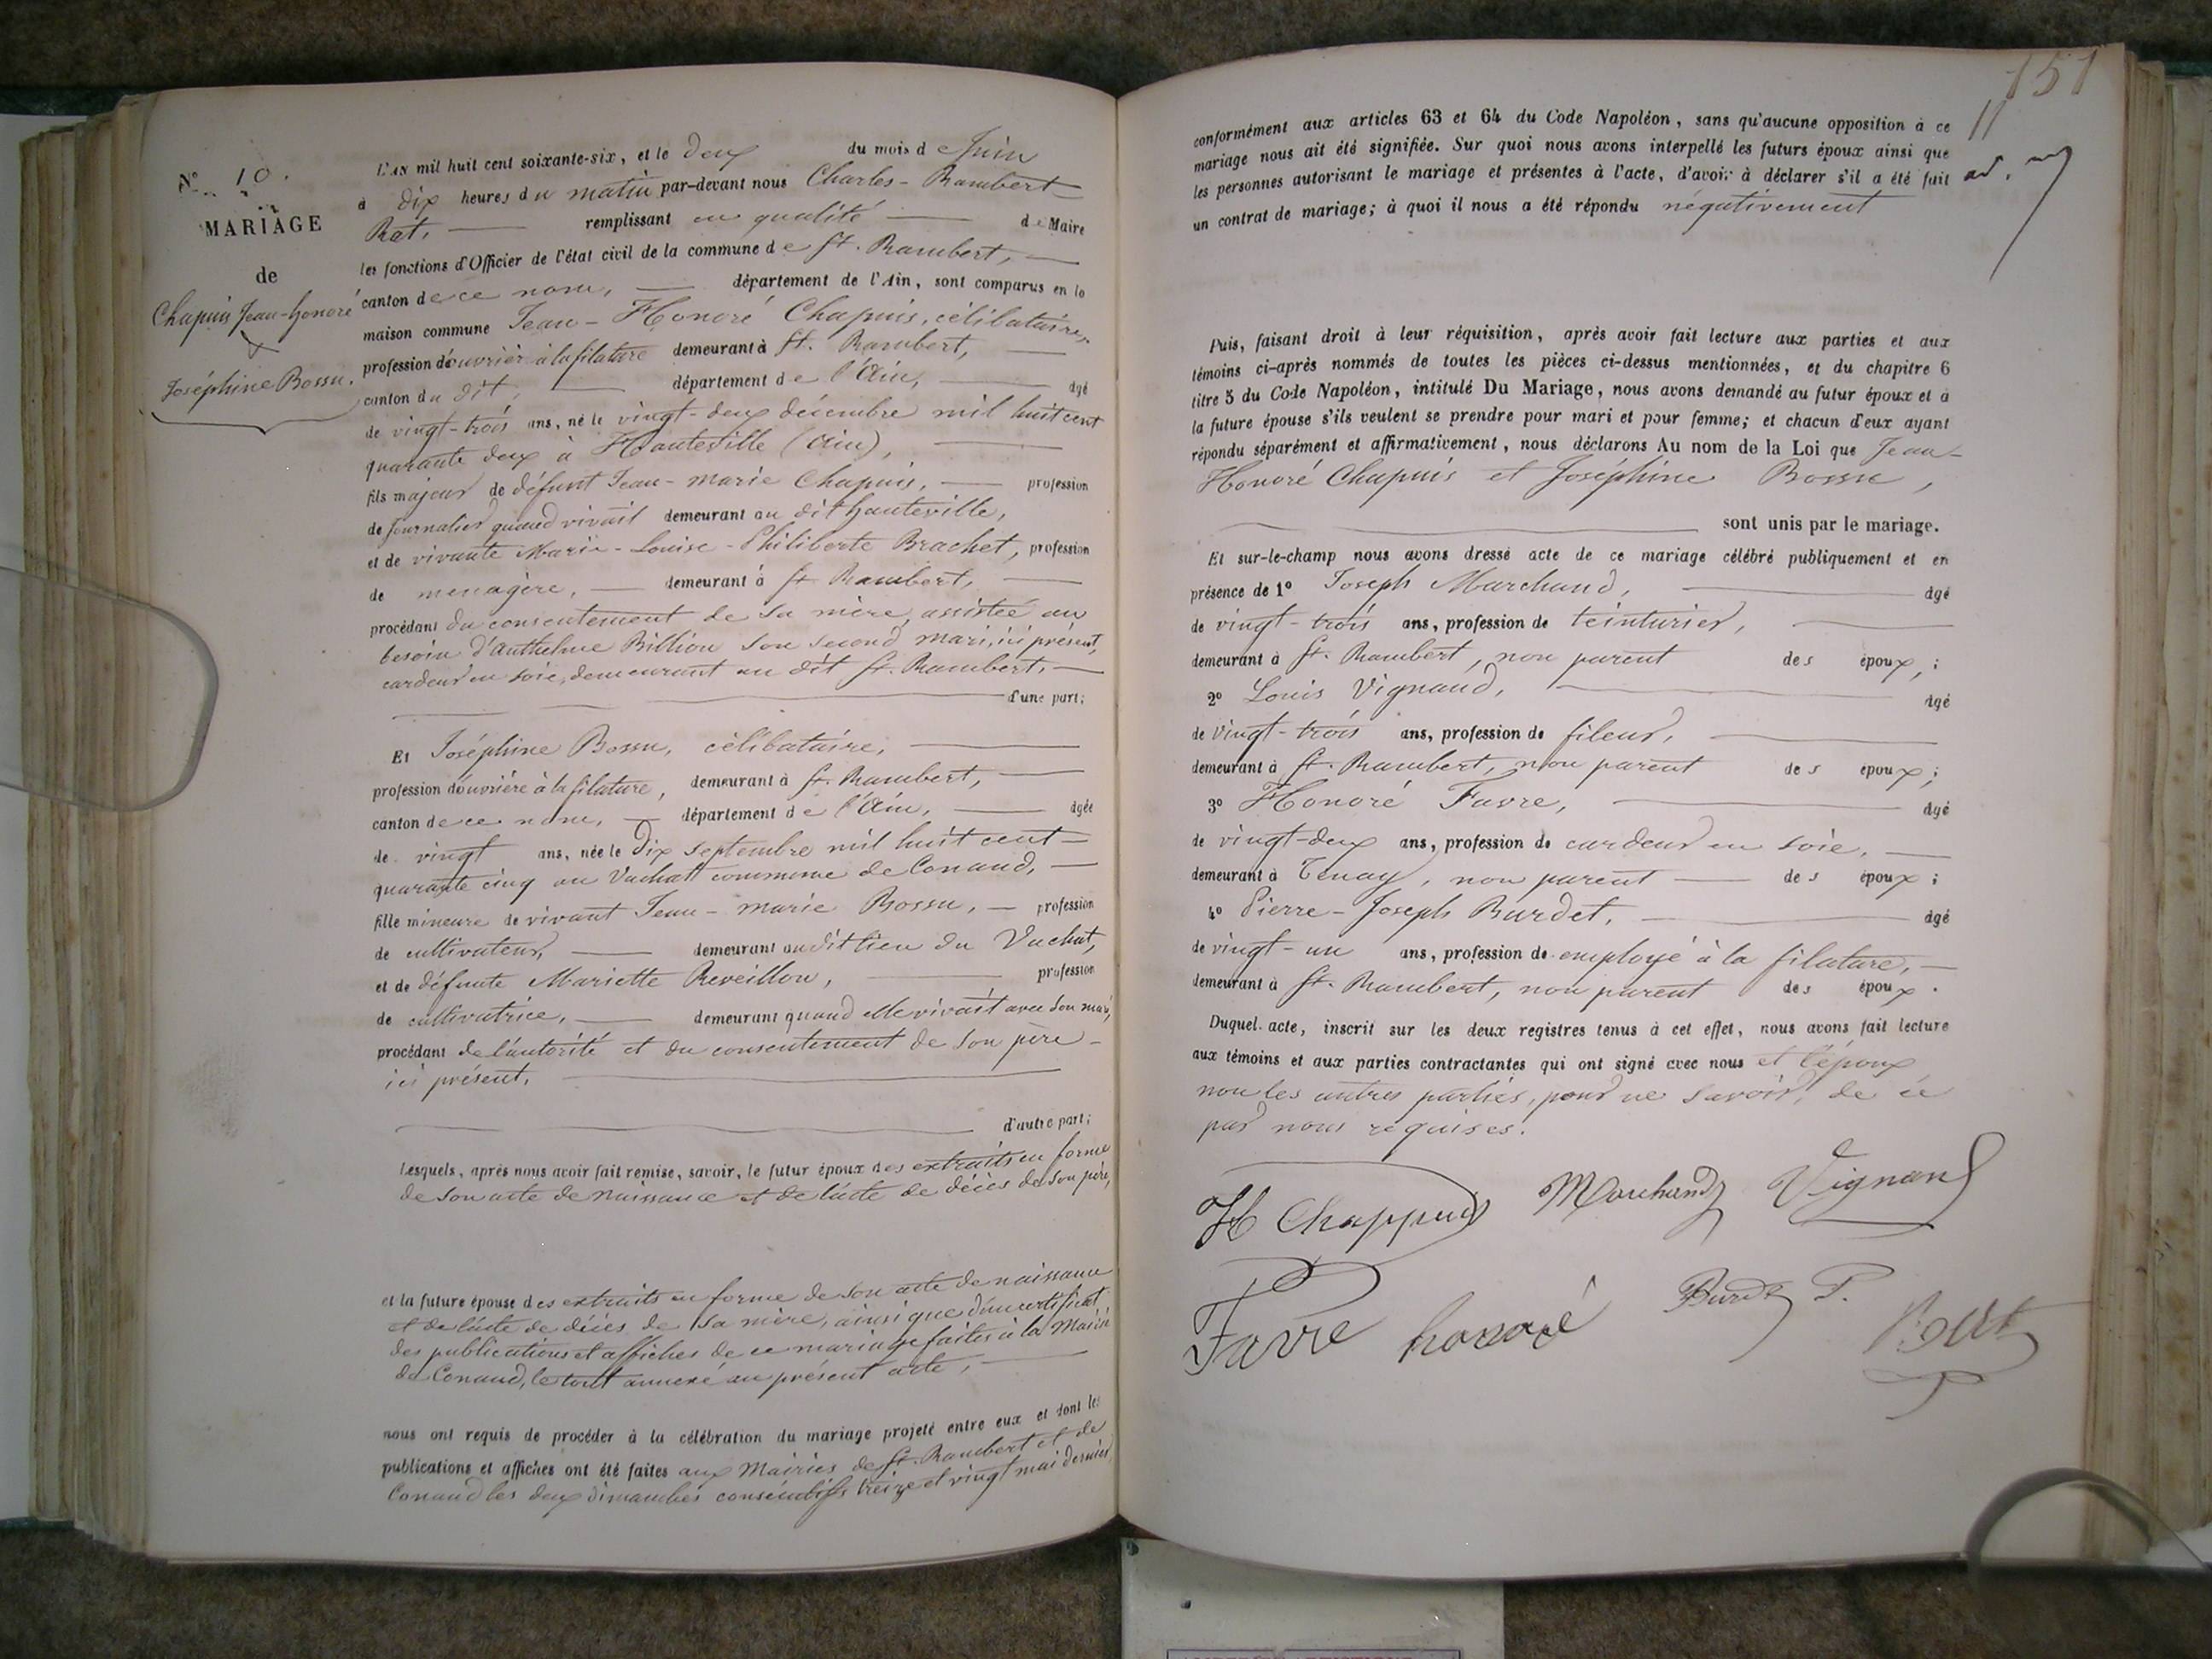 N° 10.
MARIAGE
de
Chapuis Jean-honoré
&
Joséphine Bossu.
L'AN mil huit cent soixante-six, et le deux du mois de Juin
à dix heures du matin par-devant nous Charles-Rambert
Rat, remplissant en qualité de Maire
les fonctions d'Officier de l'état civil de la commune de St. Rambert,
canton de ce nom, département de l'Ain, sont comparus en la
maison commune Jean-Honoré Chapuis, célibataire,
profession d'ouvrier à la filature demeurant à St. Rambert,
canton du dit, département de l'Ain, âgé
de vingt-trois ans, né le vingt-deux décembre mil huit cent
quarante deux à Hauteville (Ain),
fils majeur de défunt Jean-marie Chapuis, profession
de journalier quand vivait demeurant au dit hauteville,
et de vivante Marie-Louise-Philiberte Brachet, profession
de menagère, demeurant à St Rambert,
procédant du consentement de sa mère, assistée au
besoin d'Anthelme Billion son second mari, ici présent,
cardeur en soie, demeurant au dit St. Rambert,
d'une part;
Et Joséphine Bossu, célibataire,
profession d'ouvrière à la filature, demeurant à St. Rambert,
canton de ce nom, département de l'Ain, âgée
de vingt ans, née le dix septembre mil huit cent
quarante cinq au Vachat commune de Conand,
fille mineure de vivant Jean-marie Bossu, profession
de cultivateur, demeurant au dit lieu du Vachat,
et de défunte Mariette Reveillon, profession
de cultivatrice, demeurant quand elle vivait avec son mari,
procédant de l'autorité et du consentement de son père
ici présent,
d'autre part;
Lesquels, après nous avoir fait remise, savoir, le futur époux des extraits en forme
de son acte de naissance et de l'acte de décès de son père,
et la future épouse des extraits en forme de son acte de naissance
et de l'acte de décès de sa mère, ainsi que d'un certificat
des publications et affiches de ce mariage faites à la Mairie
de Conand, le tout annexé au présent acte,
nous ont requis de procéder à la célébration du mariage projeté entre eux et dont les
publications et affiches ont été faites aux Mairies de St. Rambert et de
Conand les deux dimanches consécutifs treize et vingt mai dernier
151
11
conformément aux articles 63 et 64 du Code Napoléon, sans qu'aucune opposition à ce
mariage nous ait été signifiée. Sur quoi nous avons interpellé les futurs époux ainsi que
les personnes autorisant le mariage et présentes à l'acte, d'avoir à déclarer s'il a été fait
un contrat de mariage; à quoi il nous a été répondu négativement
Puis, faisant droit à leur réquisition, après avoir fait lecture aux parties et aux
témoins ci-après nommés de toutes les pièces ci-dessus mentionnées, et du chapitre 6
titre 5 du Code Napoléon, intitulé Du Mariage, nous avons demandé au futur époux et à
la future épouse s'ils veulent se prendre pour mari et pour femme; et chacun d'eux ayant
répondu séparément et affirmativement, nous déclarons Au nom de la Loi que Jean-
Honoré Chapuis et Joséphine Bossu,
sont unis par le mariage.
Et sur-le-champ nous avons dressé acte de ce mariage célébré publiquement et en
présence de 1° Joseph Marchand, âgé
de vingt-trois ans, profession de teinturier,
demeurant à St. Rambert, non parent des époux,;
2° Louis Vignand, âgé
de vingt-trois ans, profession de fileur,
demeurant à St. Rambert, non parent des époux;
3° Honoré Favre, âgé
de vingt-deux ans, profession de cardeur en soie,
demeurant à Tenay, non parent des époux;
4° Pierre-Joseph Burdet, âgé
de vingt-un ans, profession de employé à la filature,
demeurant à St. Rambert, non parent des époux.
Duquel acte, inscrit sur les deux registres tenus à cet effet, nous avons fait lecture
aux témoins et aux parties contractantes qui ont signé avec nous et l'époux
non les autres parties, pour ne savoir, de ce
par nous requises.
H Chappuis Marchand Vignand
Favre honoré Burdet P. Rat